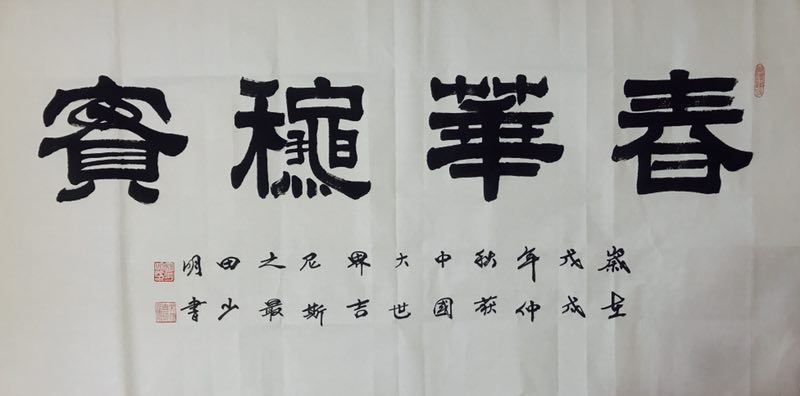 春華龝實
歲在
戊戌
年仲
秋获
中國
大世
界吉
尼斯
之最
田少
明書